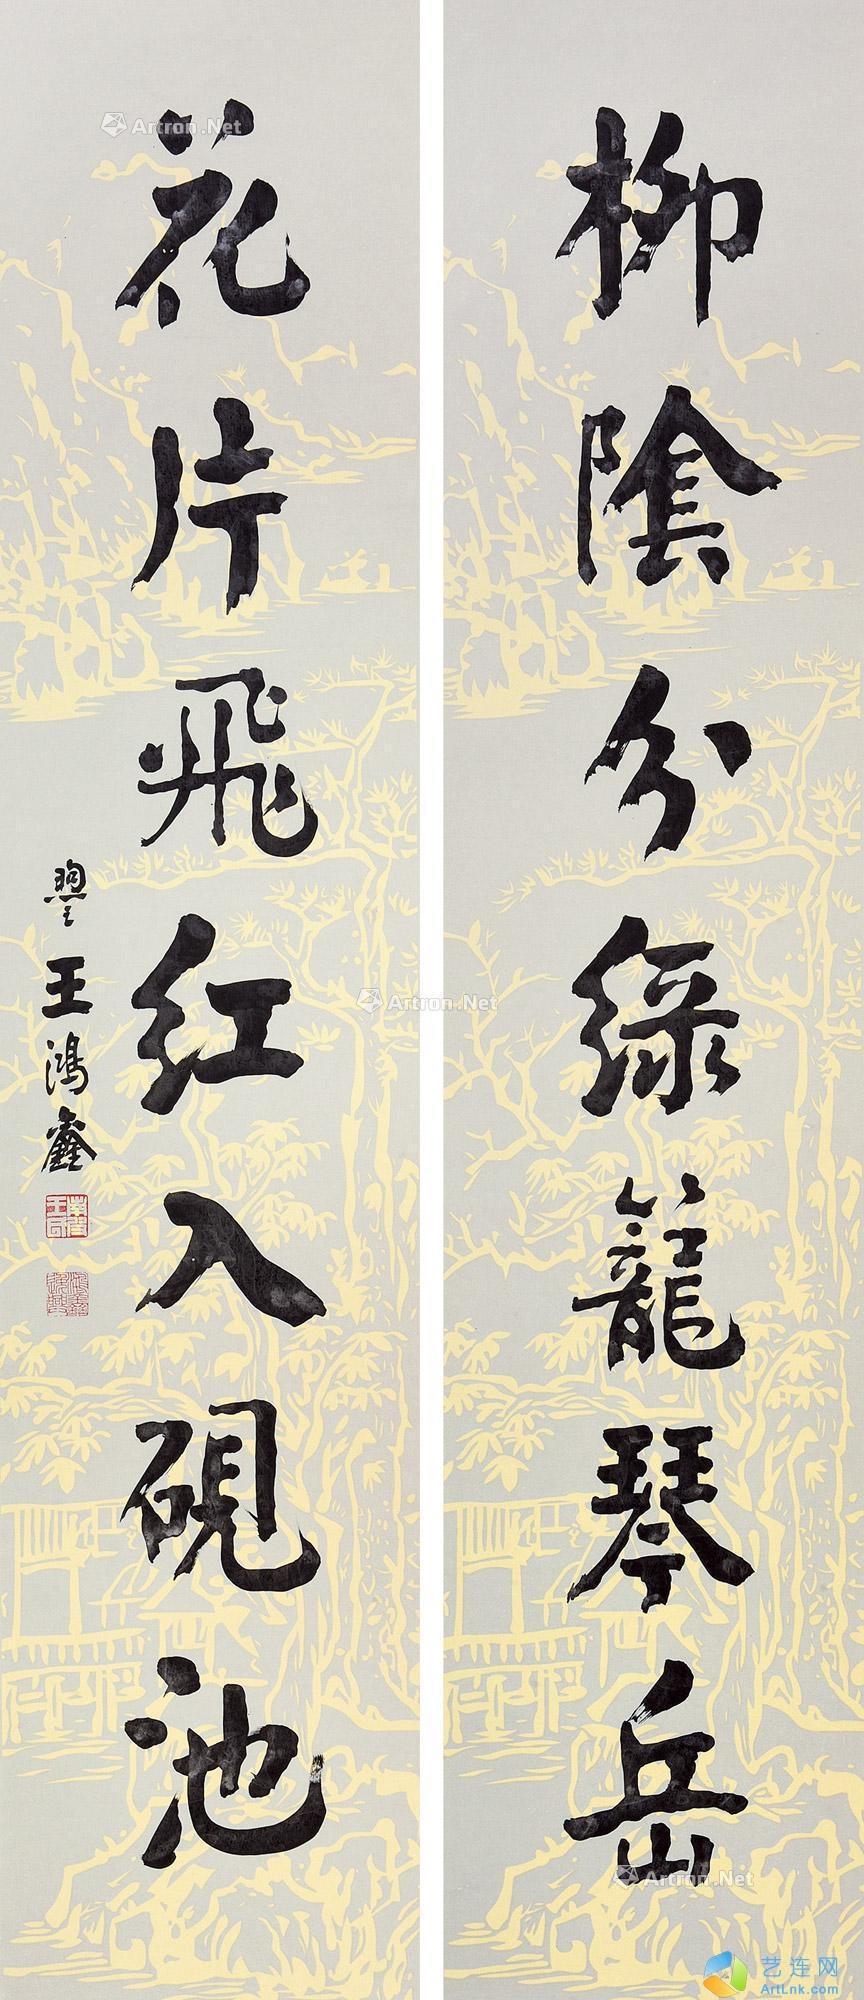 柳陰分綠籠琴岳
花片飛紅入硯池
王鴻鑫
Artron.Net
Artron.Net
Artron.Net
艺连网
ArtLnk.com